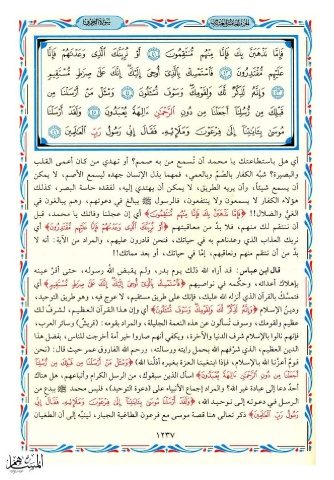 فَإِمَّا نَذْهَبَنَّ بِكَ فَإِنَّا مِنْهُم مُّنتَقِمُونَ ﴿٤١﴾ أَوْ نُرِيَنَّكَ الَّذِي وَعَدْنَاهُمْ فَإِنَّا
عَلَيْهِم مُّقْتَدِرُونَ ﴿٤٢﴾ فَاسْتَمْسِكْ بِالَّذِي أُوحِيَ إِلَيْكَ إِنَّكَ عَلَى صِرَاطٍ مُّسْتَقِيمٍ
﴿٤٣﴾ وَإِنَّهُ لَذِكْرٌ لَّكَ وَلِقَوْمِكَ وَسَوْفَ تُسْأَلُونَ ﴿٤٤﴾ وَسْئَلْ مَنْ أَرْسَلْنَا مِن
قَبْلِكَ مِن رُّسُلِنَا أَجَعَلْنَا مِن دُونِ الرَّحْمَٰنِ ءَالِهَةً يُعْبَدُونَ ﴿٤٥﴾ وَلَقَدْ أَرْسَلْنَا
مُوسَى بِآيَاتِنَا إِلَى فِرْعَوْنَ وَمَلَإِيْهِ فَقَالَ إِنِّي رَسُولُ رَبِّ الْعَالَمِينَ ﴿٤٦﴾
أي هل باستطاعتك يا محمد أن تُسمع من به صمم؟ أو تهدي من كان أعمى القلب
والبصيرة؟ شبَّه الكفار بالصُّم وبالعمي، فمهما بذل الإنسان جهده ليسمع الأصم، لا يمكن
أن يسمع شيئاً، وأن يريه الطريق، لا يمكن أن يهتدي إليه، لفقده حاسة البصر، كذلك
هؤلاء الكفار لا يسمعون ولا ينتفعون، فالرسول ﷺ يبالغ في دعوتهم، وهم يبالغون في
الغيِّ والضلال!! ﴿فَإِمَّا نَذْهَبَنَّ بِكَ فَإِنَّا مِنْهُم مُّنتَقِمُونَ﴾ أي إن عجلنا وفاتك يا محمد، قبل
أن ننتقم لك منهم، فلا بدَّ من معاقبتهم ﴿أَوْ نُرِيَنَّكَ الَّذِي وَعَدْنَاهُمْ فَإِنَّا عَلَيْهِم مُّقْتَدِرُونَ﴾ أي
نريك العذاب الذي وعدناهم به في حياتك، فنحن قادرون عليهم، والمراد من الآية: أنه لا
بدَّ من أن ننتقم منهم ونعاقبهم، إمَّا في حياتك، أو بعد مماتك!!
قال ابن عباس: قد أراه الله ذلك يوم بدر، ولم يقبض الله رسوله، حتى أقرَّ عينه
بإهلاك أعدائه، وحكَّمه في نواصيهم ﴿فَاسْتَمْسِكْ بِالَّذِي أُوحِيَ إِلَيْكَ إِنَّكَ عَلَى صِرَاطٍ مُّسْتَقِيمٍ﴾ أي
فتمسَّك بالقرآن الذي أنزله الله عليك، فإنك على طريق مستقيم، لا عوج فيه، وهو طريق التوحيد،
ودينُ الإسلام ﴿وَإِنَّهُ لَذِكْرٌ لَّكَ وَلِقَوْمِكَ وَسَوْفَ تُسْأَلُونَ﴾ أي وإن هذا القرآن العظيم، لشرفٌ لك
عظيم ولقومك، وسوف تُسألون عن هذه النعمة الجليلة، والمراد بقومه: (قريش) وسائر العرب،
فإنهم نالوا بالإسلام شرف الدنيا والآخرة، ويكفي أنهم صاروا خير أمة أخرجت للناس، بفضل هذا
الدين العظيم، الذي شرَّفهم الله بحمل رايته ورسالته، ورحم الله الفاروق عمر حيث قال: (نحن
قومٌ أعزَّنا الله بالإسلام، فإذا ابتغينا العزة بغيره أذلَّنا الله) ﴿وَسْئَلْ مَنْ أَرْسَلْنَا مِن قَبْلِكَ مِن رُّسُلِنَا
أَجَعَلْنَا مِن دُونِ الرَّحْمَٰنِ ءَالِهَةً يُعْبَدُونَ﴾ اسأل الذين سبقوك، من الرسل الكرام وأتباعهم، هل هناك
أحدٌ دعا إلى عبادة غير الله؟ والمراد إجماع الأنبياء على (دعوة التوحيد)، فليس محمد ﷺ ببدع من
الرسل في دعوته إلى توحيد الله، ﴿وَلَقَدْ أَرْسَلْنَا مُوسَى بِآيَاتِنَا إِلَى فِرْعَوْنَ وَمَلَإِيْهِ فَقَالَ إِنِّي
رَسُولُ رَبِّ الْعَالَمِينَ﴾ ذكر تعالى هنا قصة موسى مع فرعون الطاغية الجبار، لينبِّه إلى أن الطغيان
١٢٣٧